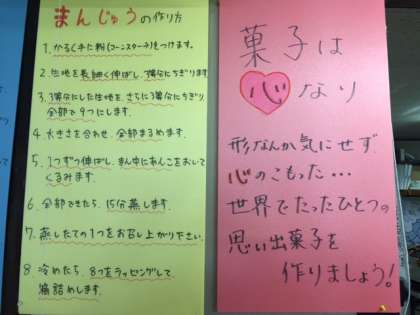 まんじゅうの作り方
1. かるく手に粉(コーンスターチ)をつけます。
2. 生地を長細く伸ばし、3等分にちぎります
3. 3等分にした生地を、さらに3等分にちぎり、
全部で9つにします。
4. 大きさを合わせ、全部まるめます。
5. 1つずつ伸ばし、まん中にあんこをおいて
くるみます。
6. 全部できたら、15分蒸します。
7. 蒸したての1つをお召し上がり下さい。
8. 冷めたら、8つをラッピングして
箱詰めします。
菓子は
心なり
形なんか気にせず
心のこもった…
世界でたったひとつの
思い出菓子を
作りましょう!